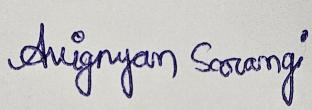 Avignyan Sarangi